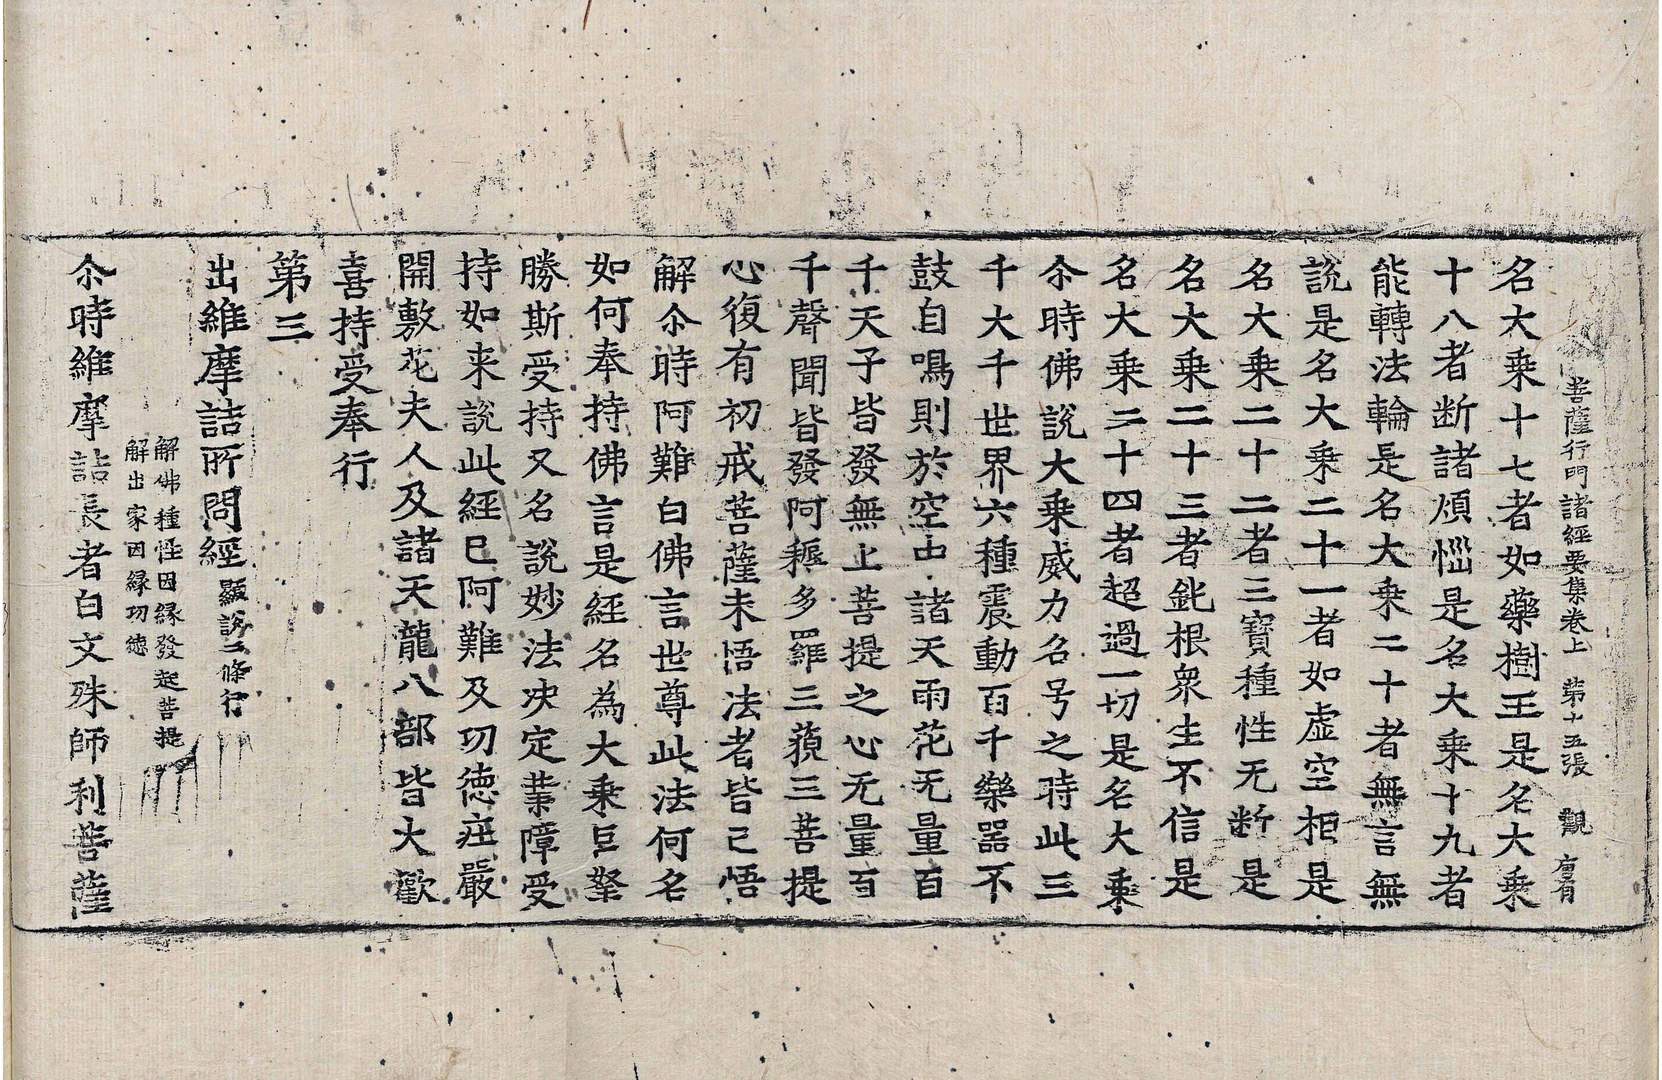 菩薩行門諸經要集卷上 第十五張 觀
名大乘十七者如藥樹王是名大乘
十八者断諸煩惱是名大乘十九者
能轉法輪是名大乘二十者無言無
說是名大乘二十一者如虛空相是
名大乘二十二者三寶種性无断是
名大乘二十三者鈍根衆生不信是
名大乘二十四者超過一切是名大乘
尒時佛說大乘威力名号之時此三
千大千世界六種震動百千樂器不
鼓自鳴則於空中諸天雨花无量百
千天子皆發無上菩提之心无量百
千聲聞皆發阿耨多羅三藐三菩提
心復有初戒菩薩未悟法者皆已悟
解尒時阿難白佛言世尊此法何名
如何奉持佛言是經名為大乘巨堅
勝斯受持又名說妙法决定業障受
持如来說此經已阿難及功徳莊嚴
開敷花夫人及諸天龍八部皆大歡
喜持受奉行
第三
出維摩詰所問經顯說二條行
解佛種性因緣發起菩提
解出家因緣功徳
尒時維摩詰長者白文殊師利菩薩